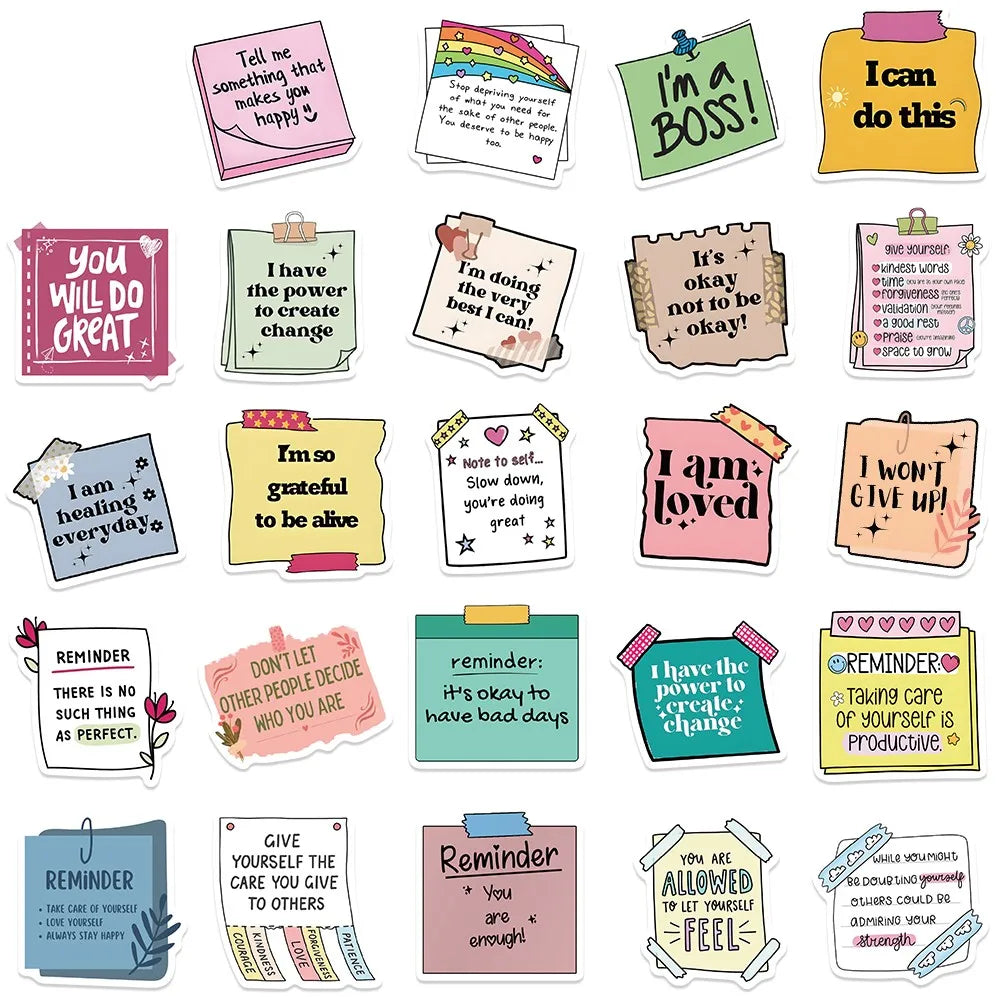 Tell me
something that
makes you
happy
Stop depriving yourself
of what you need for
the sake of other people.
You deserve to be happy
too.
I'm a
BOSS!
I can
do this
YOU
WILL DO
GREAT
I have
the power
to create
change
I'm doing
the very
best I can!
It's
okay
not to be
okay!
give yourself:
kindest words
time (you are in your own pace)
forgiveness (no one's
perfect)
validation (your feelings
matter)
a good rest
praise (you're amazing)
space to grow
I am
healing
everyday
I'm so
grateful
to be alive
Note to self...
Slow down,
you're doing
great
I am
loved
I WON'T
GIVE UP!
REMINDER
THERE IS NO
SUCH THING
AS PERFECT.
DON'T LET
OTHER PEOPLE DECIDE
WHO YOU ARE
reminder:
it's okay to
have bad days
I have the
power to
create
change
REMINDER:
Taking care
of yourself is
PRODUCTIVE.
REMINDER
• TAKE CARE OF YOURSELF
• LOVE YOURSELF
• ALWAYS STAY HAPPY
GIVE
YOURSELF THE
CARE YOU GIVE
TO OTHERS
COURAGE
KINDNESS
LOVE
FORGIVENESS
PATIENCE
Reminder
You
are
enough!
YOU ARE
ALLOWED
TO LET YOURSELF
FEEL
WHILE YOU MIGHT
BE DOUBTING yourself
OTHERS COULD BE
ADMIRING YOUR
strength